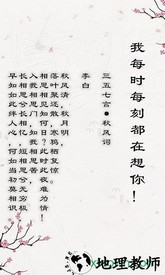 我每时每刻都在想你！
三五七言·秋风词
李白
秋风清，秋月明，
落叶聚还散，寒鸦栖复惊。
相思相见知何日？此时此夜难为情！
入我相思门，知我相思苦，
长相思兮长相忆，短相思兮无穷极，
早知如此绊人心，何如当初莫相识。
地理教师